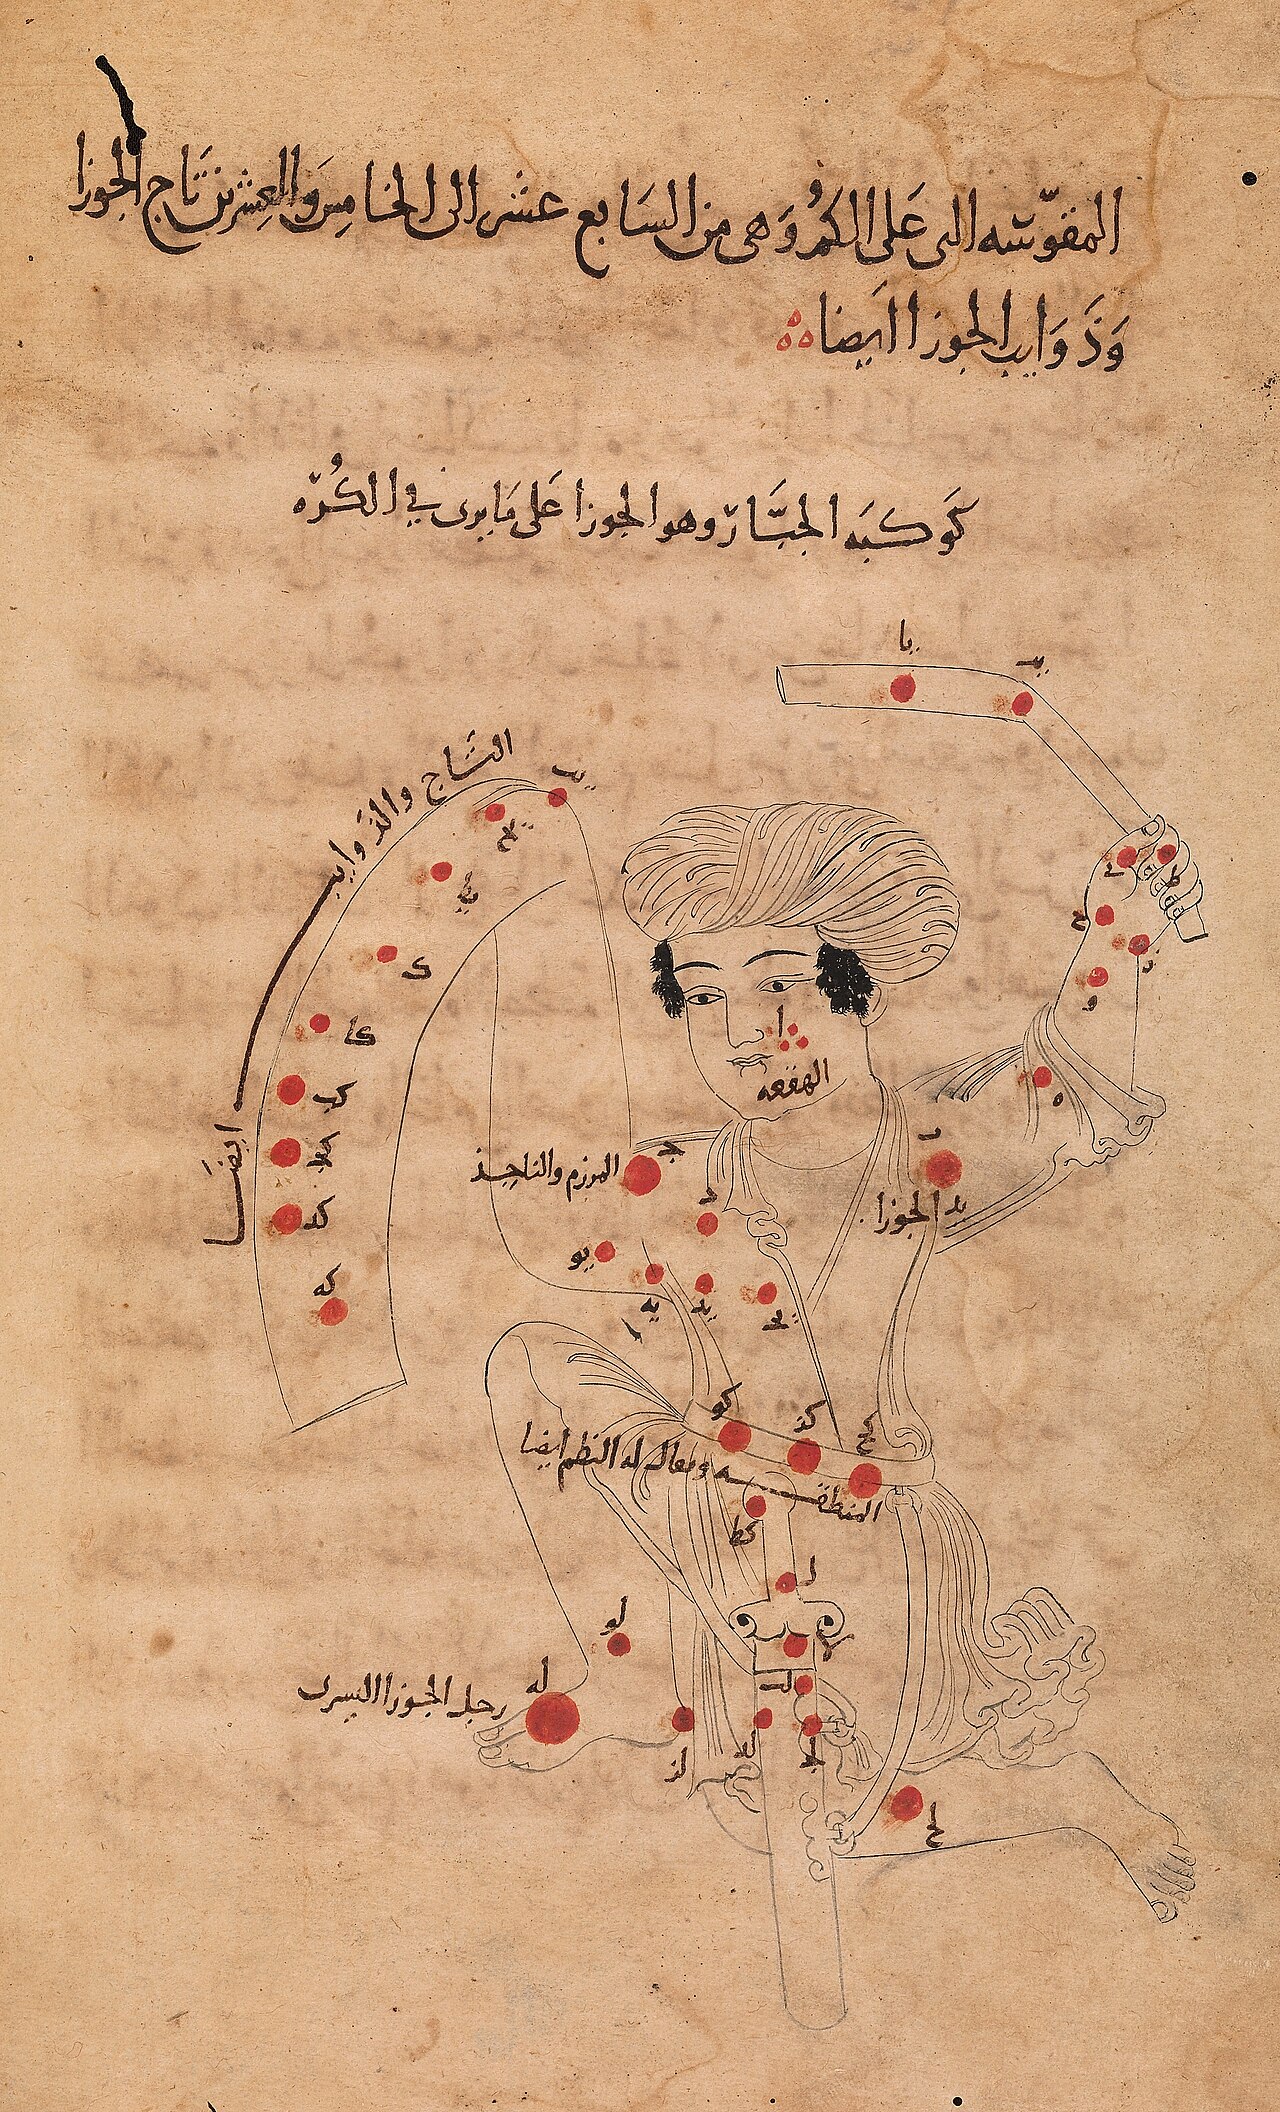 المقوّسه التى عَلى الكمُ وَهى من السَابع عشر الى الخامِس وَالعِشرين تَاج الجوزا
وَذَ وَايب الجوزا ايَضا
كَوكبَه الجبَّار وهو الجوزا عَلى مَا يرى في الكُرّه
يا
يب
التَاج والذوايب
ايضَا
يز
يح
يط
ك
كا
كب
كج
كد
كه
ى
ط
ح
ز
و
ه
ا
الهقعه
ب
يد الجوزا
ج
المرزم والناجذ
د
يو
يه
يد
يج
كو
كز
كح
المنطقه ويقال له النظم ايضا
كط
ل
لا
لب
لج
لد
لو
له
رجل الجوزا اليسرى
لز
لح